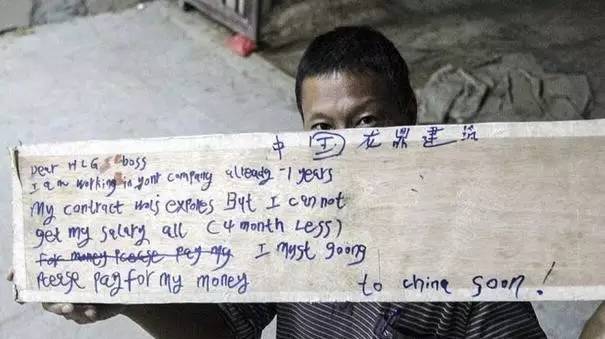 中国龙鼎建筑
Dear HLG boss
I am working in your company already 1 years
My contract was expores But I can not
get my salary all (4 month Less)
for money Please pay my I must goong
Peese pay for my money to china soon!